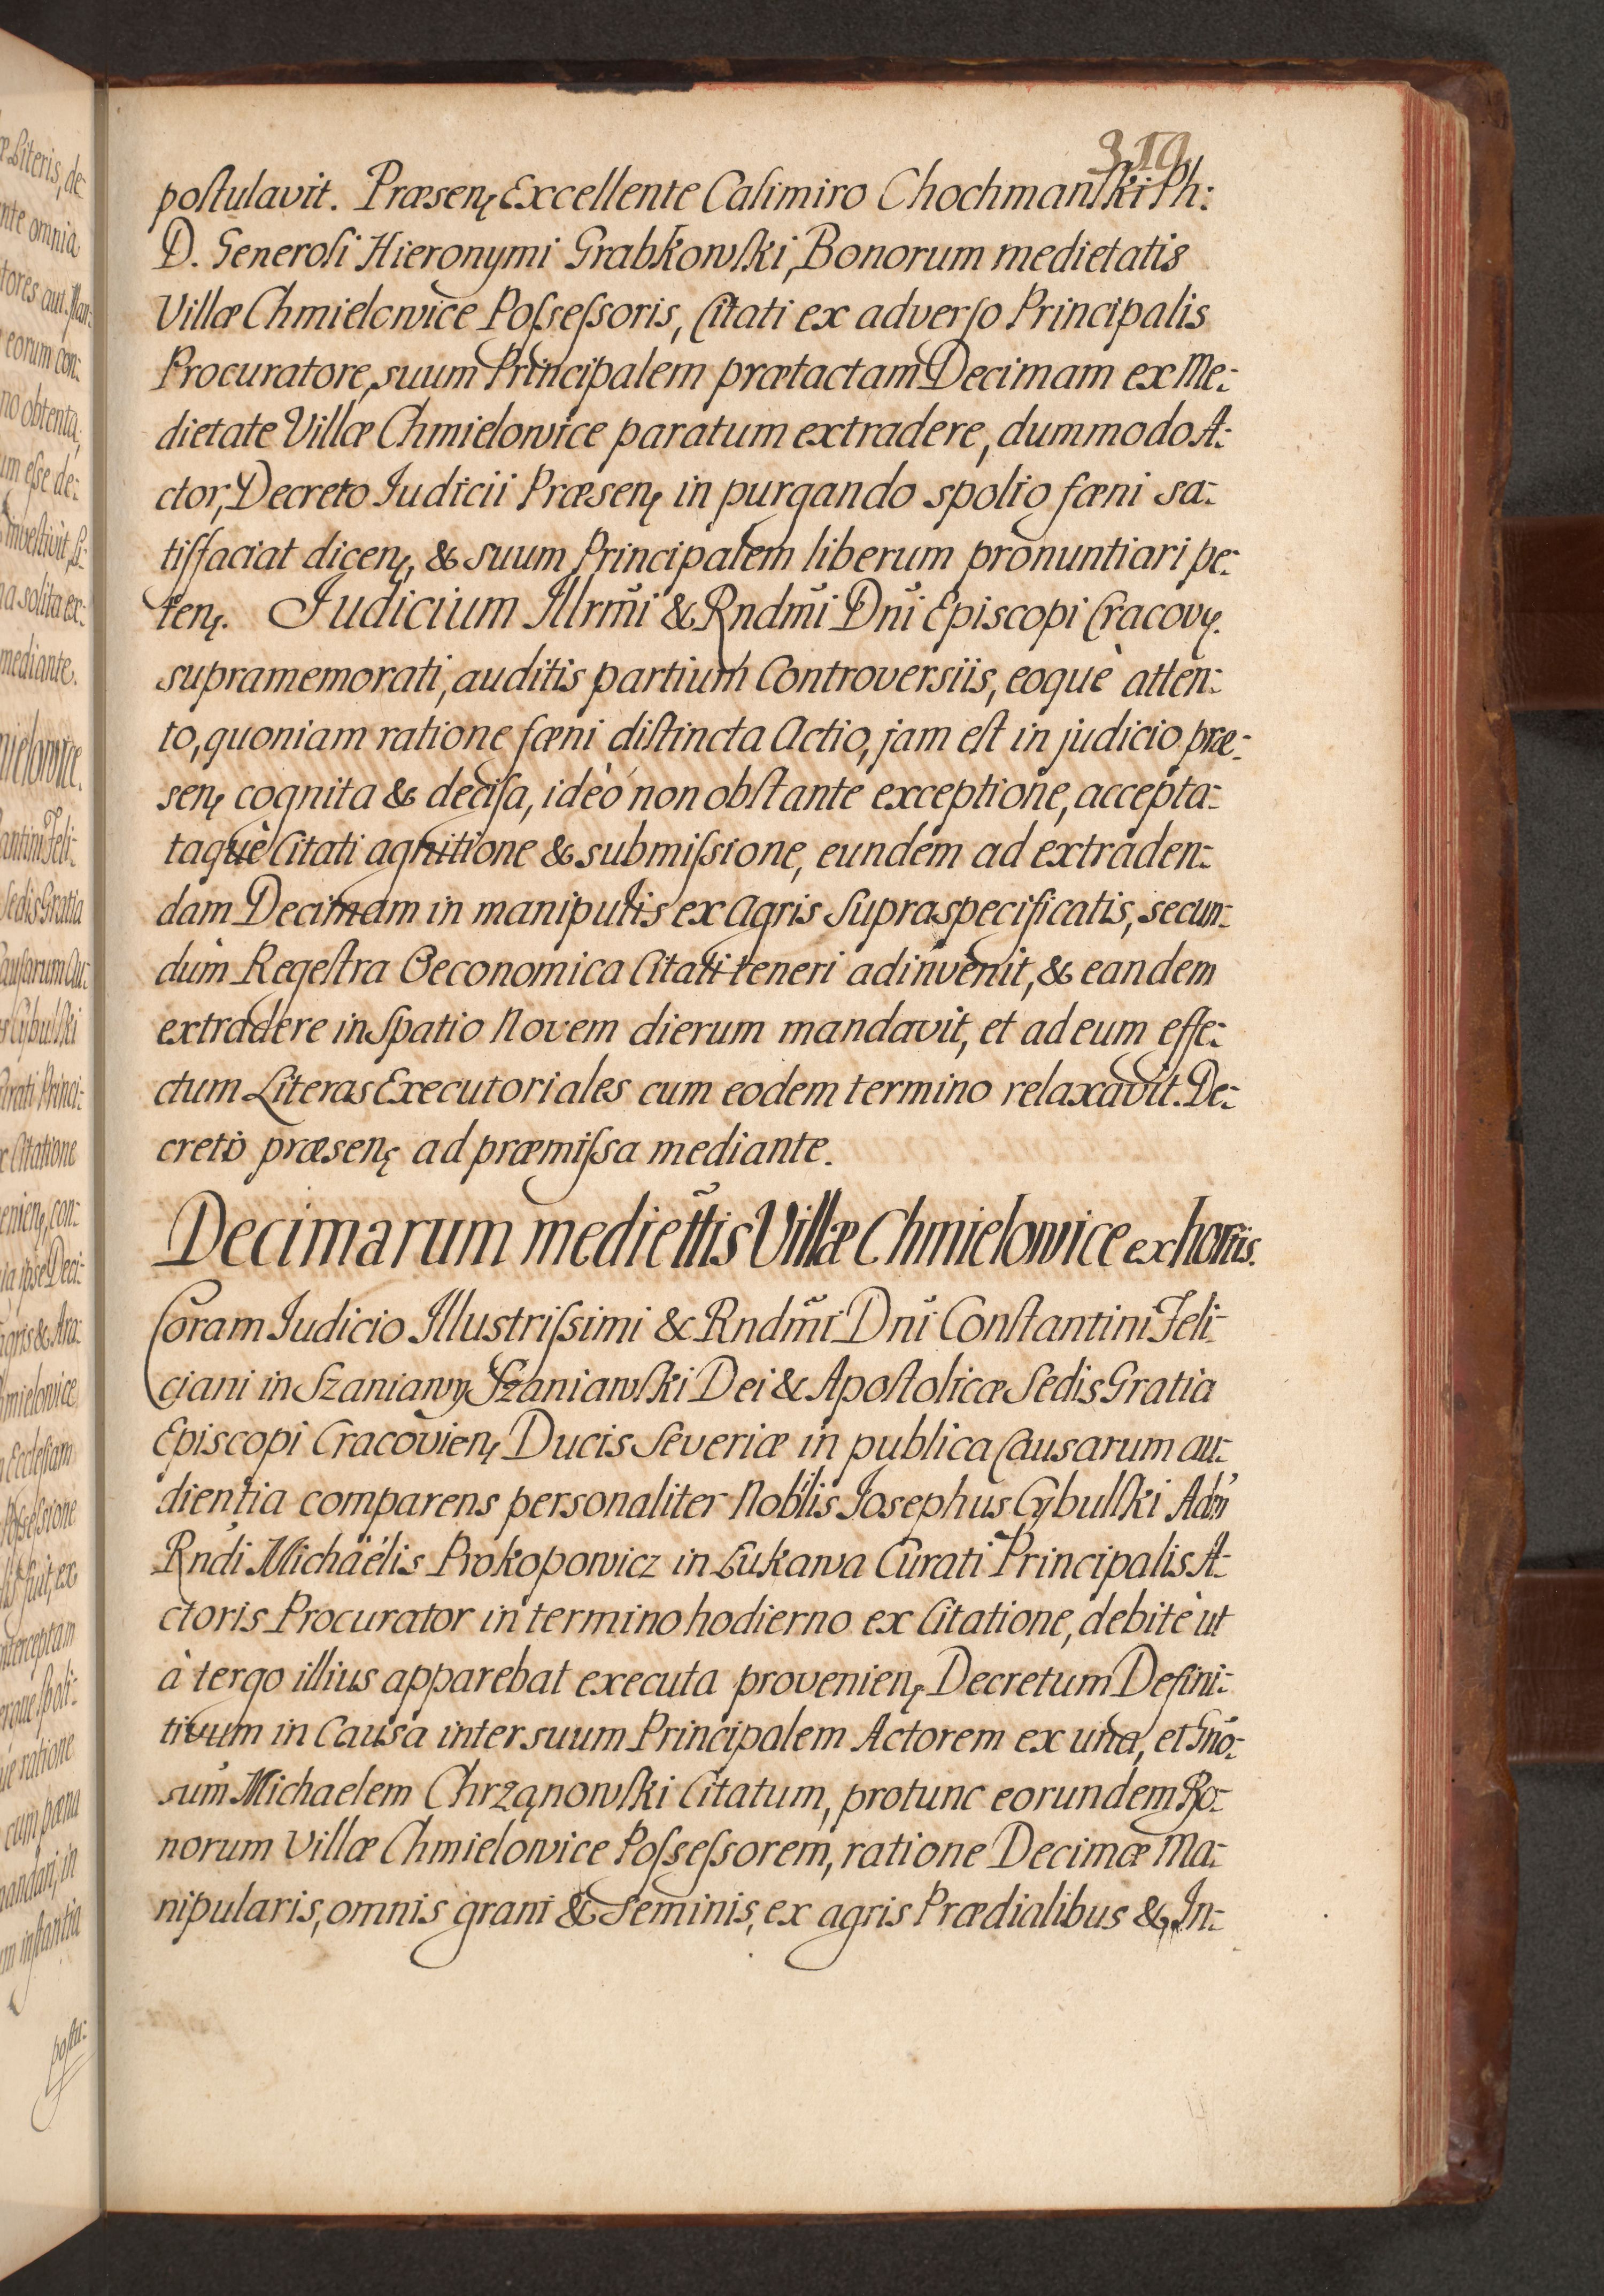 319
poſtulavit. Præsenę Excellente Casimiro Chochmanſki Ph:
D. Generoſi Hieronymi Grabkowſki, Bonorum medietatis
Villæ Chmielowice Poſseſsoris, Citati ex adverſo Principalis
Procuratore, suum Principalem prætactam Decimam ex Me-
dietate Villæ Chmielowice paratum extradere, dummodo A-
ctor, Decreto Iudicii Præsenę in purgando spolio fæni sa-
tiſfaciat dicenę, & suum Principalem liberum pronuntiari pe-
tenę. Iudicium Illrm̃i & Rndm̃i Dn̄i Episcopi Cracovę.
supramemorati, auditis partium Controversiis, eoquè atten-
to, quoniam ratione fæni diſtincta Actio, jam eſt in judicio præ-
senę cognita & deciſa, ideò non obſtante exceptione, accepta-
taquè Citati agnitione & submiſsione, eundem ad extraden-
dam Decimam in manipulis ex Agris Supraspecificatis, secun-
dùm Regeſtra Oeconomica Citati teneri adinvenit, & eandem
extradere in Spatio Novem dierum mandavit, et ad eum effe-
ctum Literas Executoriales cum eodem termino relaxavit. De-
creto præsenę ad præmiſsa mediante.
Decimarum mediett̃is Villæ Chmielowice ex hortis.
Coram Iudicio Illustriſsimi & Rndm̃i Dn̄i Conſtantini Feli-
ciani in Szaniawy Szaniawſki Dei & Apoſtolicæ Sedis Gratia
Episcopi Cracovienę Ducis Severiæ in publica Causarum au-
dientia comparens personaliter Nobilis Iosephus Cybulſki Adm̃
Rndi Michäelis Prokopowicz in Łukawa Curati Principalis A-
ctoris Procurator in termino hodierno ex Citatione, debitè ut
à tergo illius apparebat executa provenienę Decretum Defini-
tivum in Causa inter suum Principalem Actorem ex una, et Gn̄o-
sum Michaelem Chrząnowſki Citatum, protunc eorundem Bo-
norum Villæ Chmielowice Poſseſsorem, ratione Decimæ Ma-
nipularis, omnis grani & Seminis, ex agris Prædialibus & In-